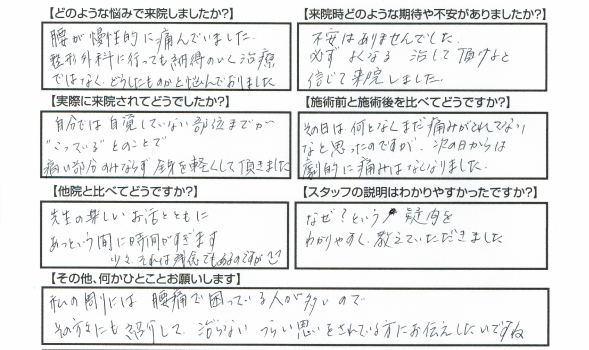 【どのような悩みで来院しましたか?】
腰が慢性的に痛んでいました。
整形外科に行っても納得のいく治療
ではなく、どうしたものかと悩んでおりました
【来院時どのような期待や不安がありましたか?】
不安はありませんでした。
必ず よくなる 治して頂けると
信じて来院しました。
【実際に来院されてどうでしたか?】
自分では自覚していない部位までが
"こっている"とのことで
痛い部分のみならず 全身を軽くして頂きました
【施術前と施術後を比べてどうですか?】
その日は何となくまだ痛みがとれてない
なと思ったのですが、次の日からは
劇的に痛みはなくなりました。
【他院と比べてどうですか?】
先生の楽しい お話とともに
あっという間に時間がすぎます
少々、それは残念でもあるのですが
【スタッフの説明はわかりやすかったですか?】
なぜ?という 疑問を
わかりやすく、教えていただきました
【その他、何かひとことお願いします】
私の周りには 腰痛で困っている人が多いので
その方々にも紹介して、治らない つらい思いをされている方にお伝えしたいですね